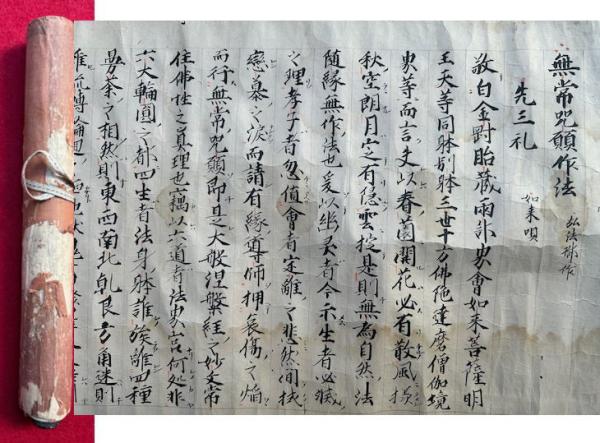 無常咒願作法 弘法御作
先三礼 如来唄
敬白金剛胎蔵両部界會如来菩薩明
王天等同躰別躰三世十方佛陁達磨僧伽境
界等而言夫以春薗開花必有散風
秋空朗月定有隠雲挍是則無為自然法
随縁無作法也爰以幽灵者今示生者必滅
之理孝子者忽値會者定離之悲然間拭
戀慕之涙而請有縁導師押哀傷之焔
而行無常咒願即是大般涅槃経之妙文常
住佛性之真理也竊以六道者法界宮何処非
六大輪圓之都四生者法身躰誰族離四種
曼荼之相然則東西南北乹艮方角迷則